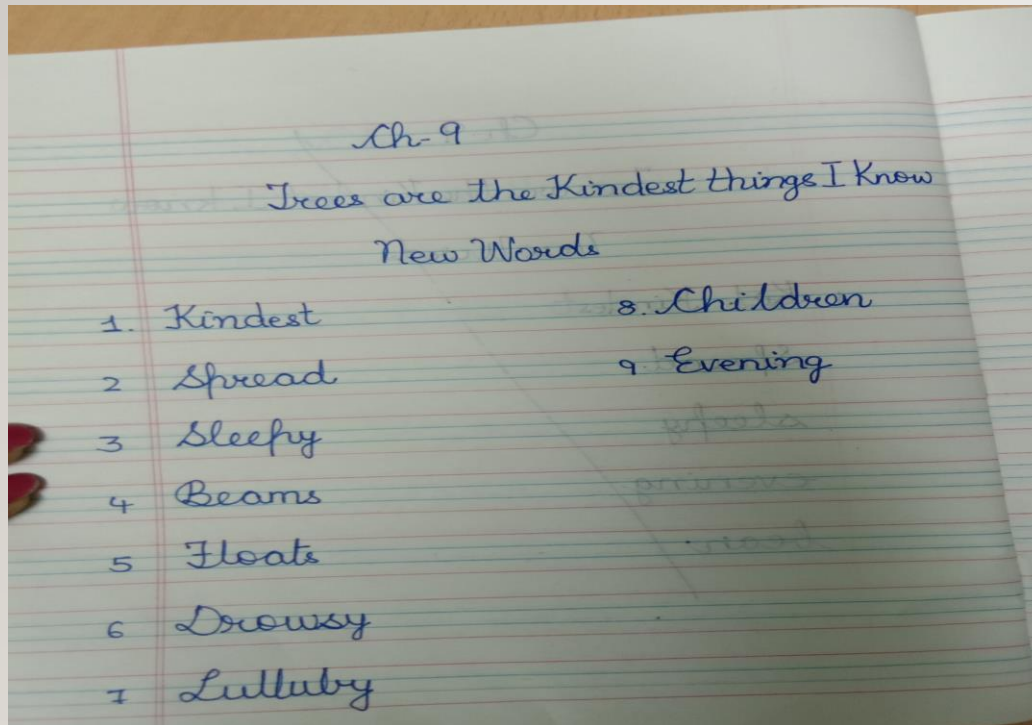 Ch-9
Trees are the Kindest things I Know
New Words
1. Kindest
2 Spread
3 Sleepy
4 Beams
5 Floats
6 Drowsy
7 Lulluby
8. Children
9 Evening